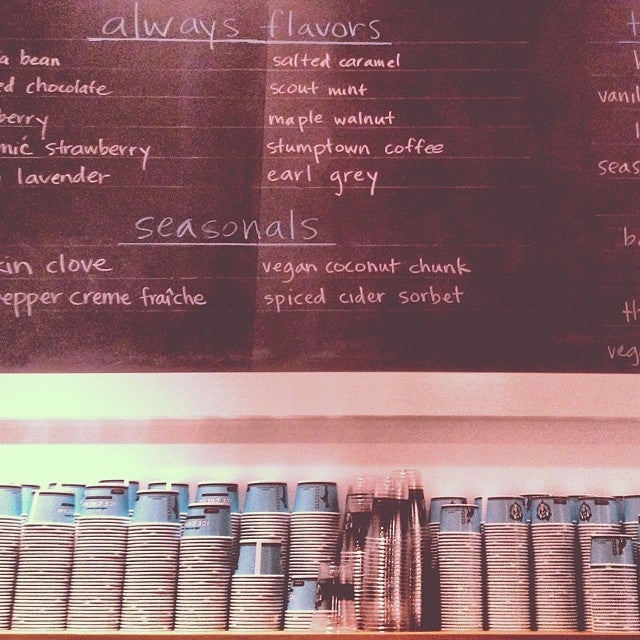 always flavors
a bean
ed chocolate
berry
mic strawberry
lavender
salted caramel
scout mint
maple walnut
stumptown coffee
earl grey
seasonals
kin clove
epper creme fraîche
vegan coconut chunk
spiced cider sorbet
vanil
seas
b
th
veg
ICE CREAM